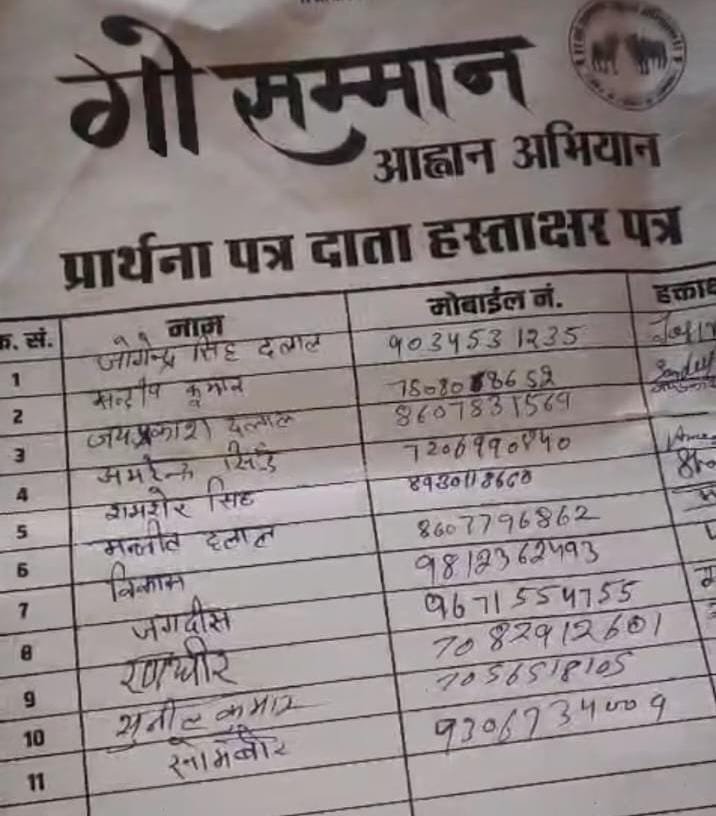 गो सम्मान
आह्वान अभियान
प्रार्थना पत्र दाता हस्ताक्षर पत्र
क. सं. नाम मोबाईल नं. हस्ताक्ष
1 जोगेन्द्र सिंह दलाल 9034531235
2 सन्दीप कुमार 7508018652
3 जयप्रकाश दलाल 8607831569
4 अमरेन्द्र सिंह 7206990840
5 शमशेर सिंह
6 मन्जीत दलाल 8607796862
7 विकास 9812362493
8 जगदीस 9671554755
9 रणधीर 7082912601
10 सुनील कुमार 7056518105
11 सोमबीर 9306734009